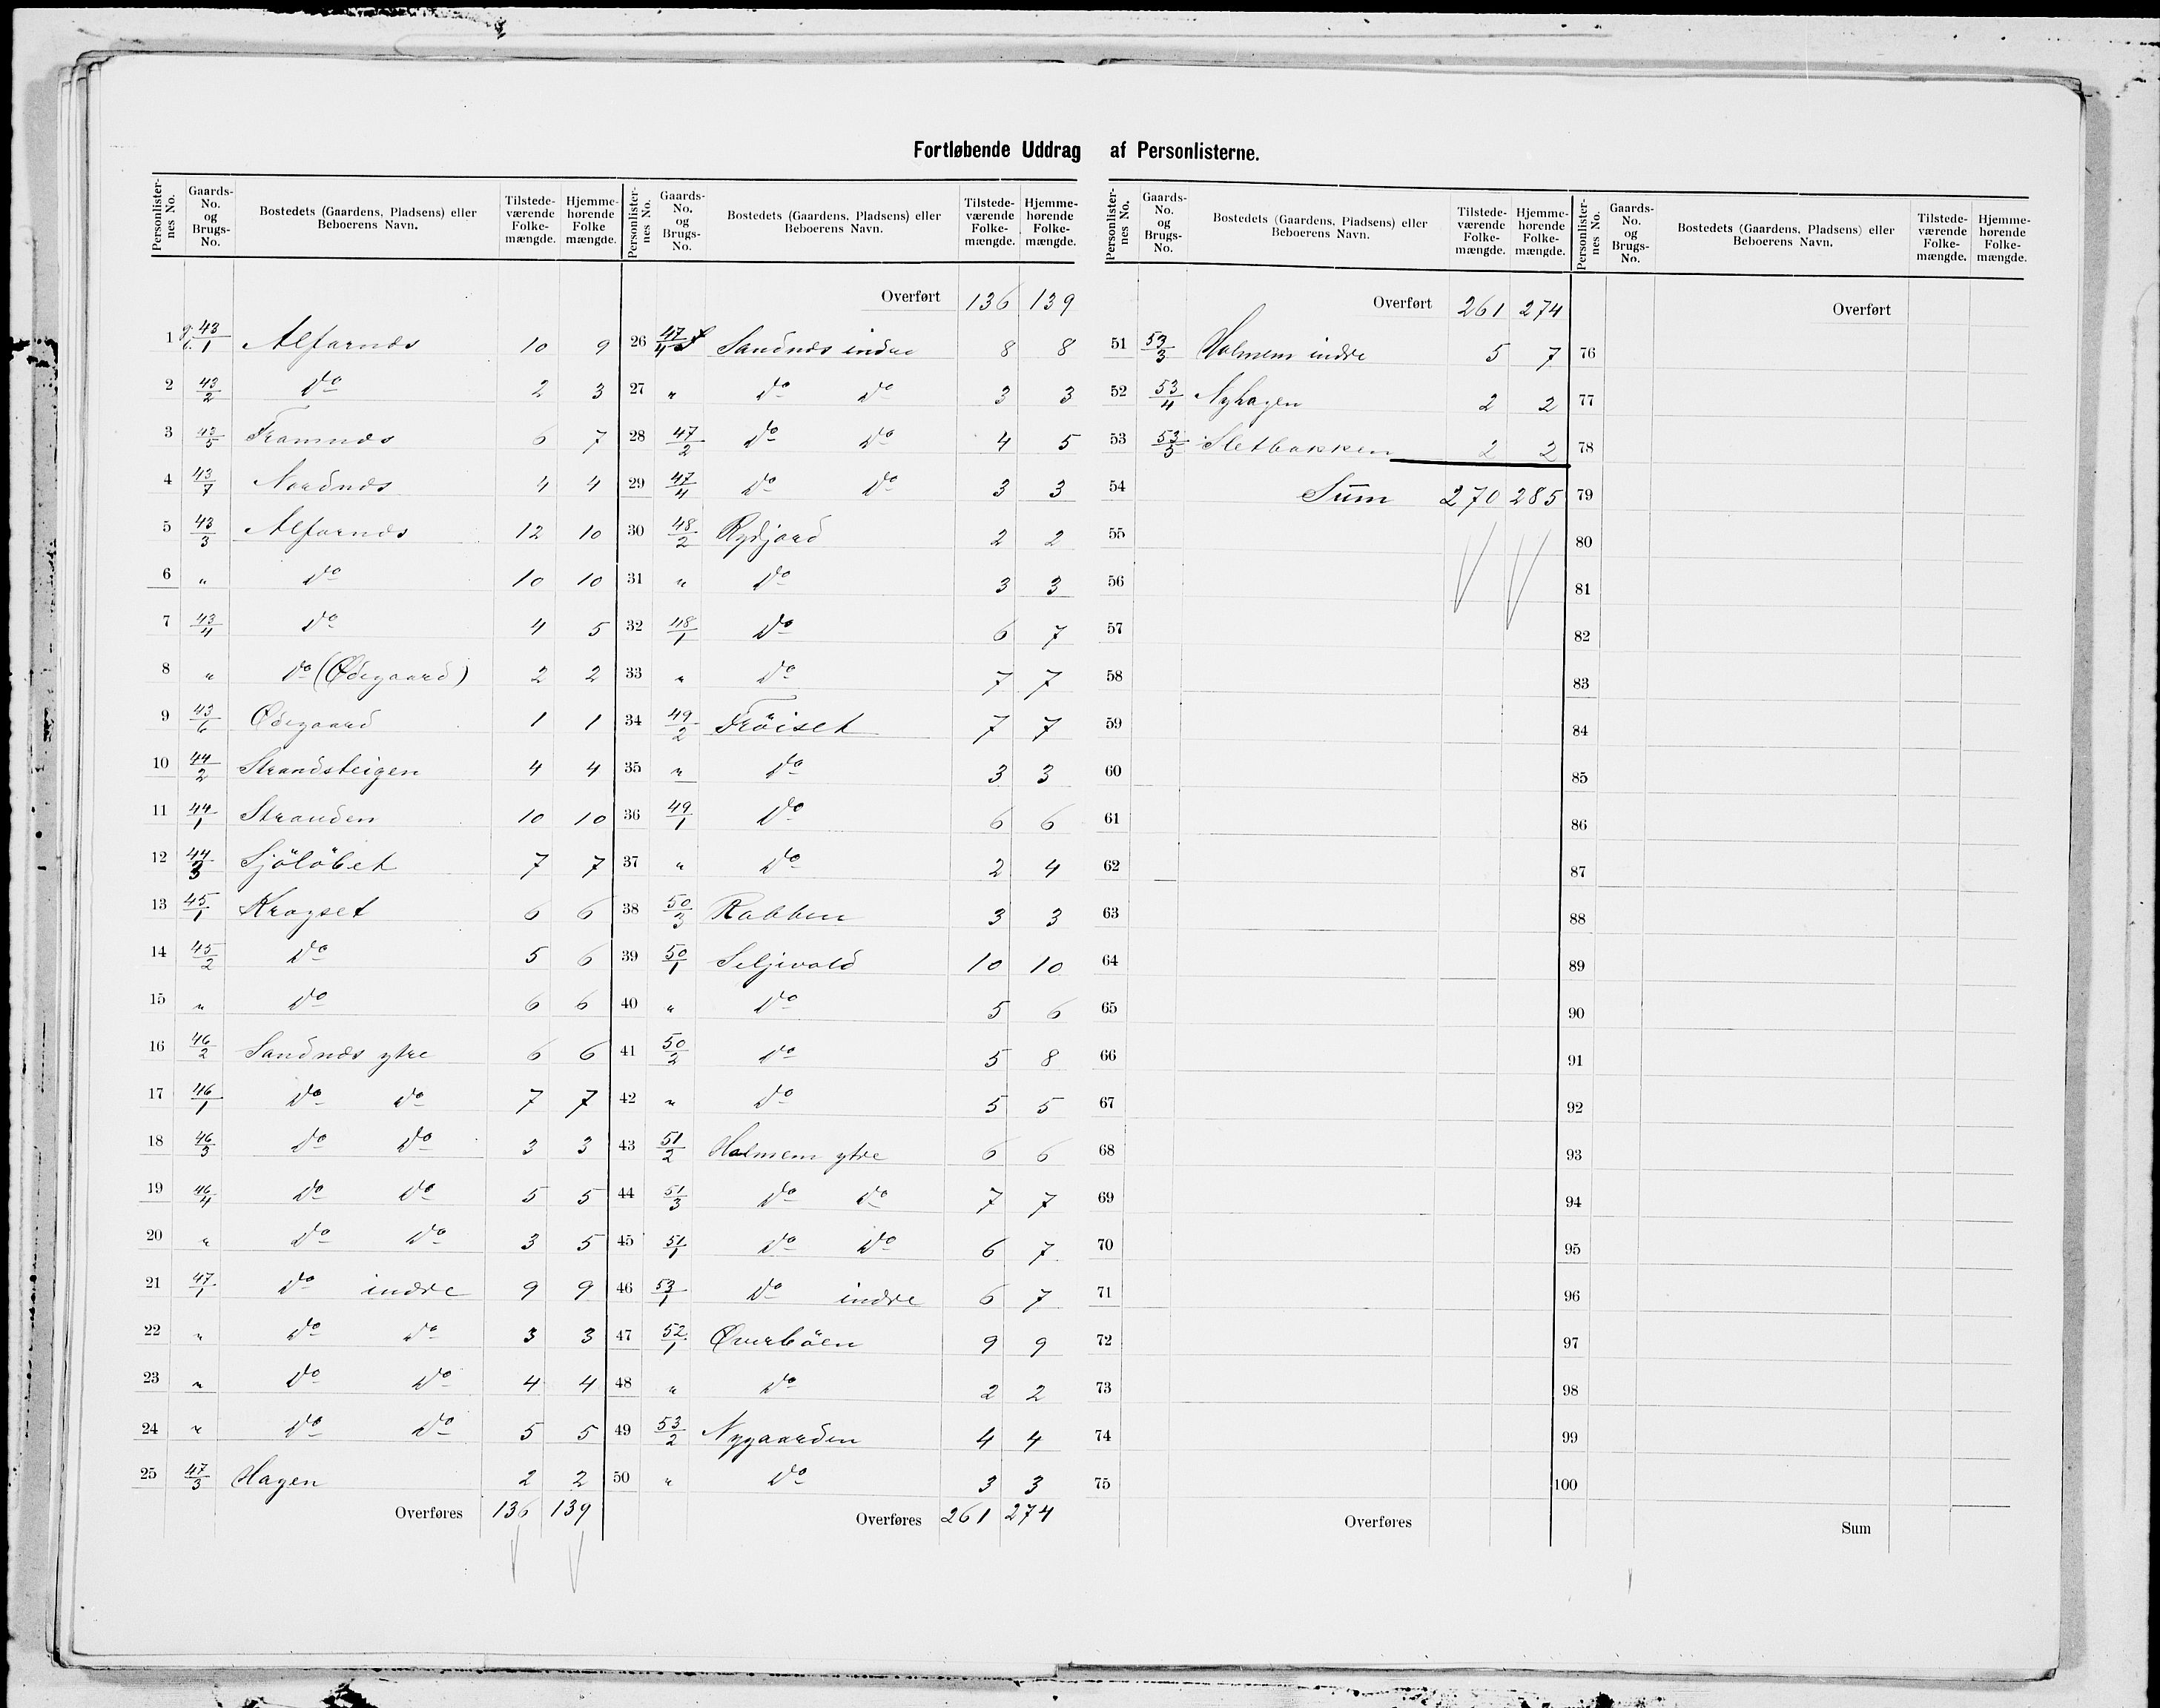 Fortløbende Uddrag af Personlisterne.
Personlister-nes No. | Gaards-No. og Brugs-No. | Bostedets (Gaardens, Pladsens) eller Beboerens Navn. | Tilstede-værende Folke-mængde. | Hjemme-hørende Folke mængde.
1 43/1 Alfarnæs 10 9
2 43/2 do 2 3
3 43/5 Framnæs 6 7
4 43/7 Nordnæs 4 4
5 43/3 Alfarnæs 12 10
6 " do 10 10
7 43/4 do 4 5
8 " do (Ødegaard) 2 2
9 43/6 Ødegaard 1 1
10 44/2 Strandsteigen 4 4
11 44/1 Stranden 10 10
12 44/3 Sjöløbet 7 7
13 45/1 Kragset 6 6
14 45/2 do 5 6
15 " do 6 6
16 46/2 Sandnæs ytre 6 6
17 46/1 do do 7 7
18 46/3 do do 3 3
19 46/4 do do 5 5
20 " do do 3 5
21 47/1 do indre 9 9
22 " do do 3 3
23 " do do 4 4
24 " do do 5 5
25 47/3 Hagen 2 2
Overføres 136 139
Personlister-nes No. | Gaards-No. og Brugs-No. | Bostedets (Gaardens, Pladsens) eller Beboerens Navn. | Tilstede-værende Folke-mængde. | Hjemme-hørende Folke-mængde.
Overført 136 139
26 47/4 Sandnæs indre 8 8
27 " do do 3 3
28 47/2 do do 4 5
29 47/4 do do 3 3
30 48/2 Rydjord 2 2
31 " do 3 3
32 48/1 do 6 7
33 " do 7 7
34 49/2 Fröiset 7 7
35 " do 3 3
36 49/1 do 6 6
37 " do 2 4
38 50/3 Rabben 3 3
39 50/1 Seljevold 10 10
40 " do 5 6
41 50/2 do 5 8
42 " do 5 5
43 51/2 Holmem ytre 6 6
44 51/3 do do 7 7
45 51/1 do do 6 7
46 53/1 do indre 6 7
47 52/1 Øverböen 9 9
48 " do 2 2
49 53/2 Nygaarden 4 4
50 " do 3 3
Overføres 261 274
Personlister-nes No. | Gaards-No. og Brugs-No. | Bostedets (Gaardens, Pladsens) eller Beboerens Navn. | Tilstede-værende Folke-mængde. | Hjemme-hørende Folke-mængde.
Overført 261 274
51 53/3 Holmem indre 5 7
52 53/4 Nyhagen 2 2
53 53/5 Sletbakken 2 2
54 Sum 270 285
55
56
57
58
59
60
61
62
63
64
65
66
67
68
69
70
71
72
73
74
75
Overføres
Personlister-nes No. | Gaards-No. og Brugs-No. | Bostedets (Gaardens, Pladsens) eller Beboerens Navn. | Tilstede-værende Folke-mængde. | Hjemme-hørende Folke-mængde.
Overført
76
77
78
79
80
81
82
83
84
85
86
87
88
89
90
91
92
93
94
95
96
97
98
99
100
Sum